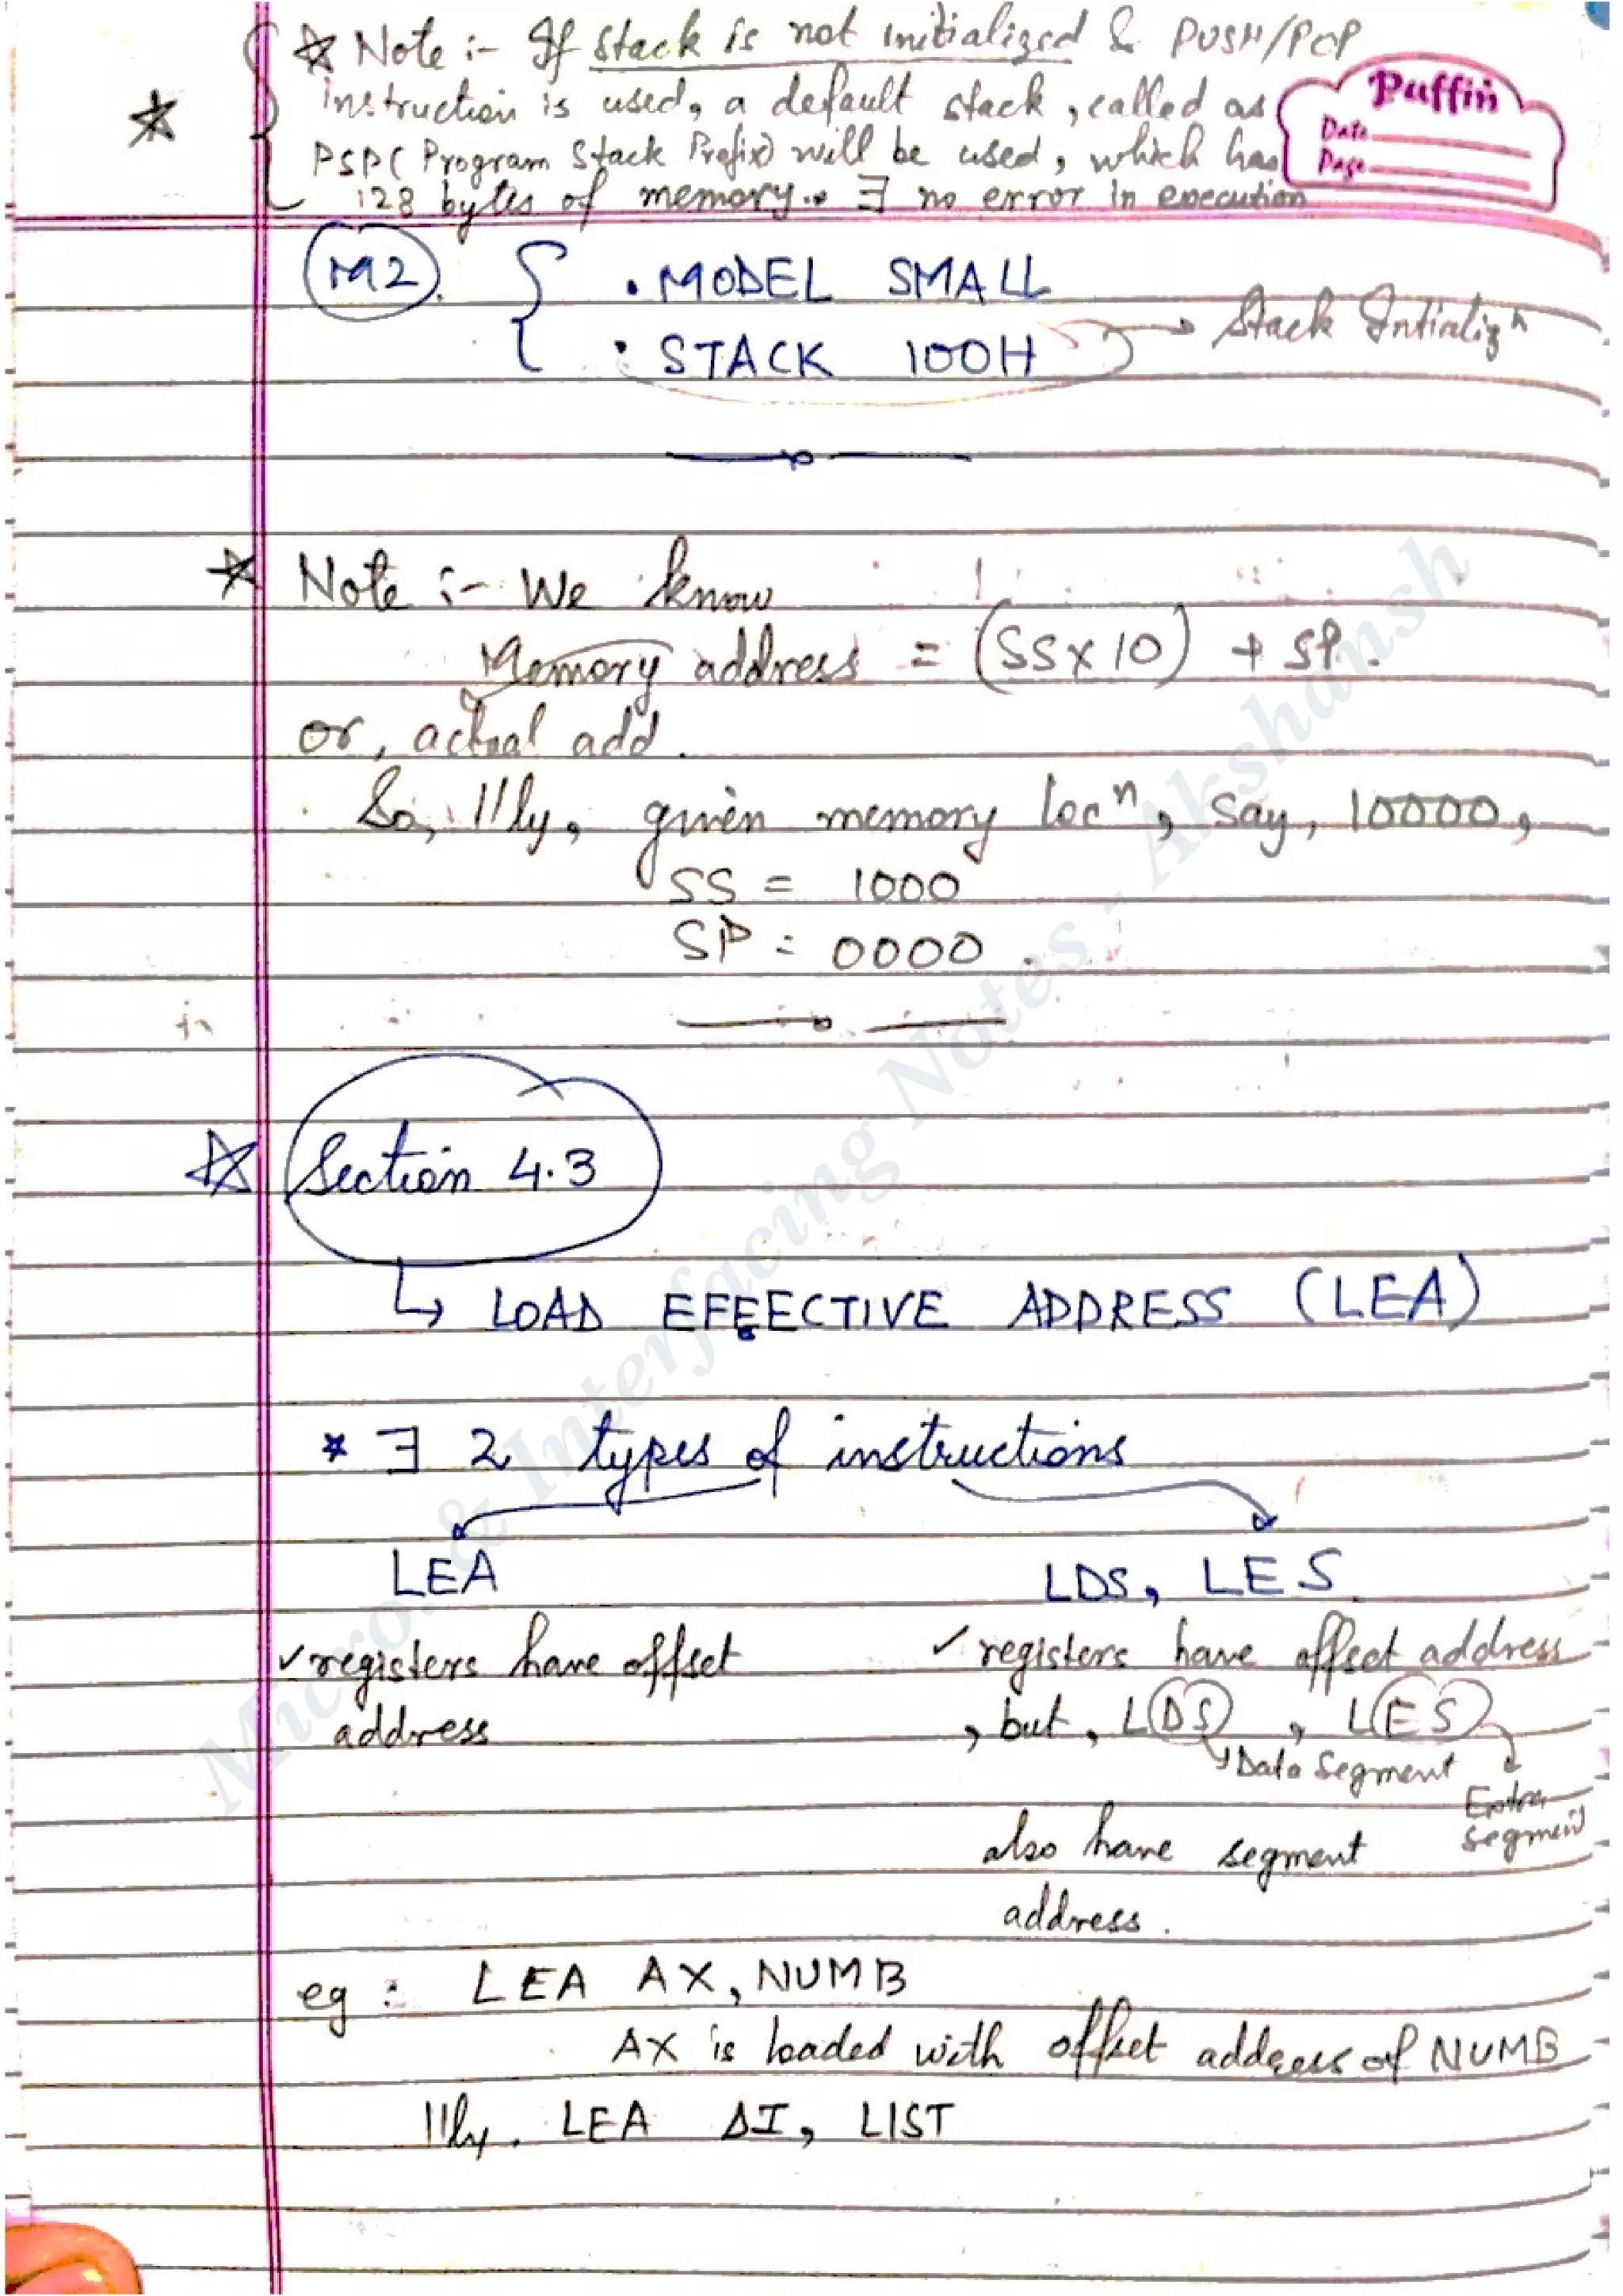 ☆ Note :- If stack is not initialized & PUSH/POP
instruction is used, a default stack, called as
PSP( Program Stack Prefix) will be used, which has
128 bytes of memory.. ∃ no error in execution
Puffin
Date
Page
M2.
.MODEL SMALL
.STACK 100H → Stack Intializⁿ
☆ Note :- We know
Memory address = (SS×10) + SP.
or, actual add.
So, ||ly, given memory locⁿ, say, 10000,
SS = 1000
SP = 0000.
☆ Section 4.3
↳ LOAD EFFECTIVE ADDRESS (LEA)
* ∃ 2 types of instructions
LEA
LDS, LES.
✓ registers have offset
address
✓ registers have offset address
, but, LDS, LES
Data Segment
Extra
segment
also have segment
address.
eg : LEA AX, NUMB
AX is loaded with offset address of NUMB
||ly. LEA DI, LIST
Micro. & Interfacing Notes - Akshansh